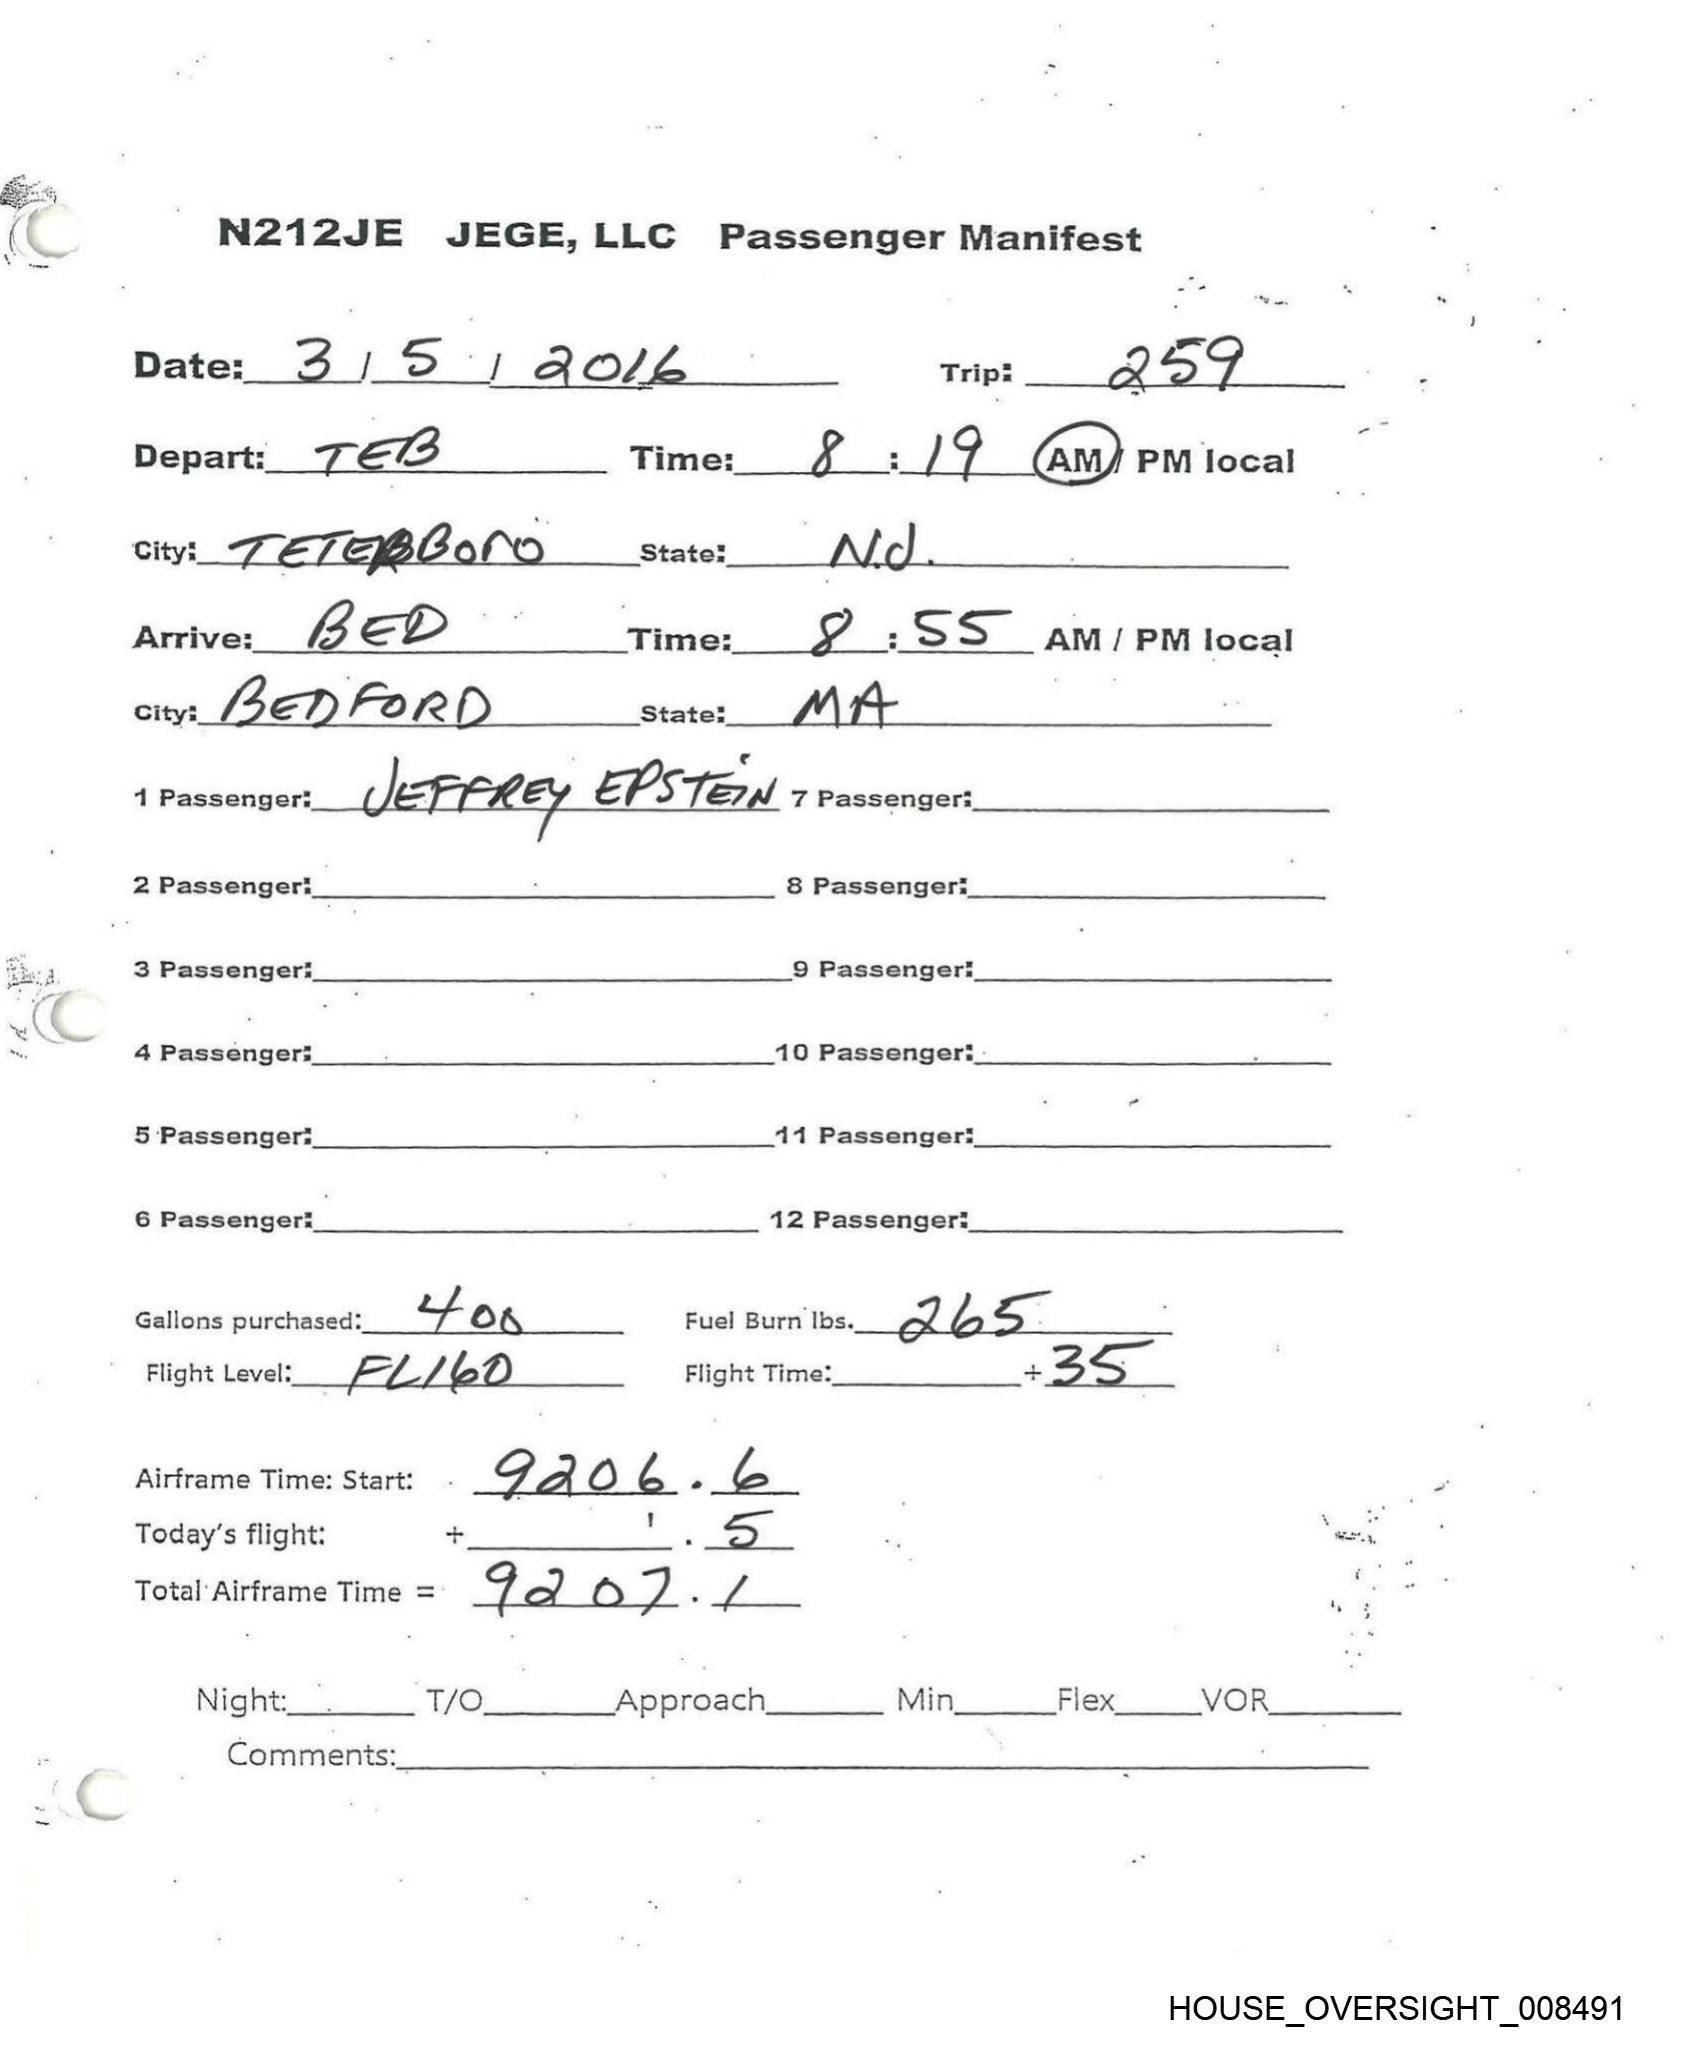 N212JE JEGE, LLC Passenger Manifest
Date: 3 / 5 / 2016 Trip: 259
Depart: TEB Time: 8 : 19 AM / PM local
City: TETERBORO State: N.J.
Arrive: BED Time: 8 : 55 AM / PM local
City: BEDFORD State: MA
1 Passenger: JEFFREY EPSTEIN 7 Passenger:
2 Passenger: 8 Passenger:
3 Passenger: 9 Passenger:
4 Passenger: 10 Passenger:
5 Passenger: 11 Passenger:
6 Passenger: 12 Passenger:
Gallons purchased: 400 Fuel Burn lbs. 265
Flight Level: FL160 Flight Time: + 35
Airframe Time: Start: 9206 . 6
Today's flight: + . 5
Total Airframe Time = 9207 . 1
Night: T/O Approach Min Flex VOR
Comments:
HOUSE_OVERSIGHT_008491